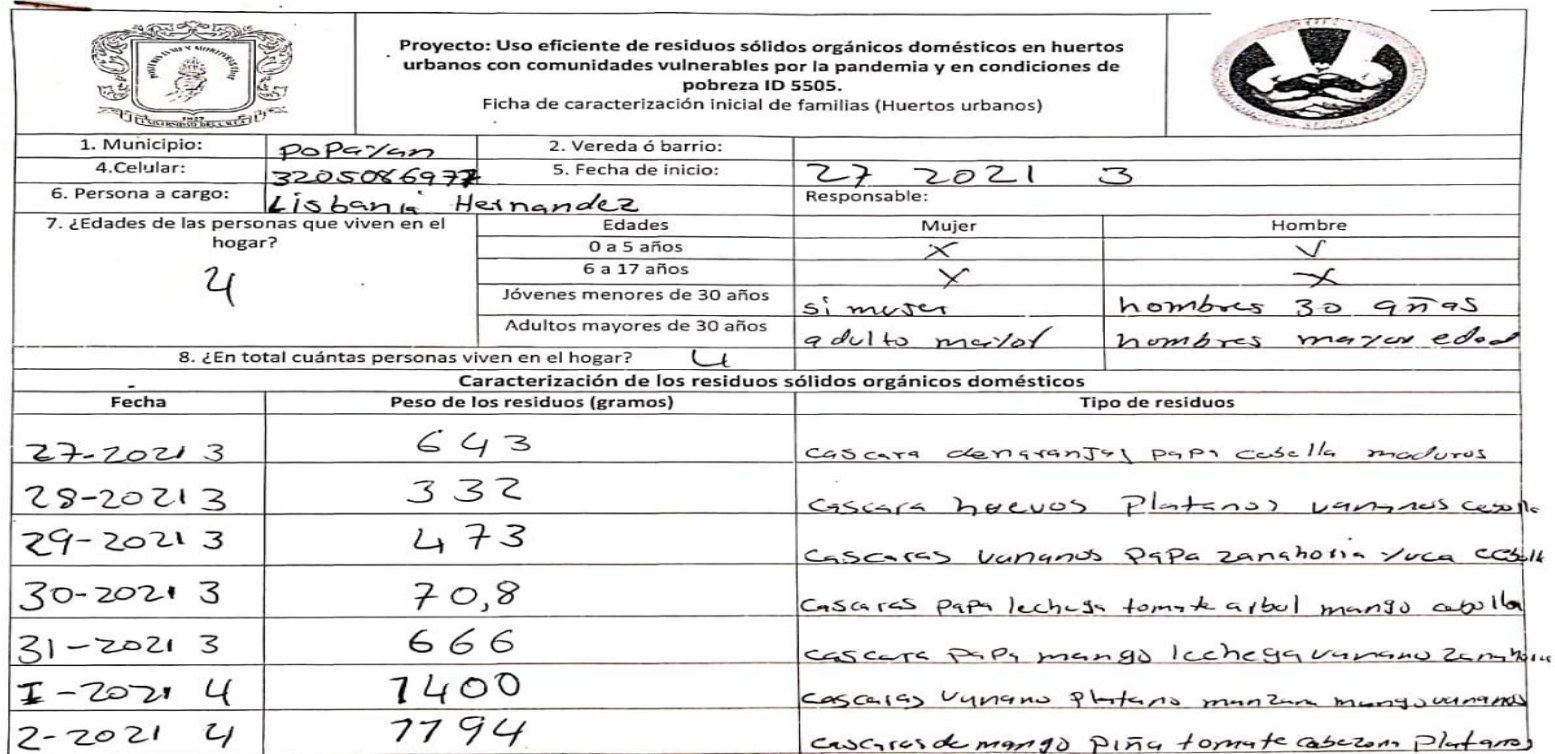 Proyecto: Uso eficiente de residuos sólidos orgánicos domésticos en huertos
urbanos con comunidades vulnerables por la pandemia y en condiciones de
pobreza ID 5505.
Ficha de caracterización inicial de familias (Huertos urbanos)
1. Municipio: Popayan 2. Vereda ó barrio:
4.Celular: 3205086977 5. Fecha de inicio: 27 2021 3
6. Persona a cargo: Lisbania Hernandez Responsable:
7. ¿Edades de las personas que viven en el hogar? 4
Edades Mujer Hombre
0 a 5 años X √
6 a 17 años X X
Jóvenes menores de 30 años si muJer hombres 30 añas
Adultos mayores de 30 años adulto maylor hombres mayor edad
8. ¿En total cuántas personas viven en el hogar? 4
Caracterización de los residuos sólidos orgánicos domésticos
Fecha Peso de los residuos (gramos) Tipo de residuos
27-2021 3 643 cascara denaranJa papa cebella maduros
28-2021 3 332 cascara huevos Platanos vananos cebolla
29-2021 3 473 cascaras vananos papa zanahoria yuca
30-2021 3 70,8 cascaras papa lechuga tomate arbol mango cebolla
31-2021 3 666 cascara papa mango lechega vanano zanahoria
I-2021 4 1400 cascaras vanano platano manzana mango vananos
2-2021 4 1194 cascaras de mango piña tomate cabezona platanos